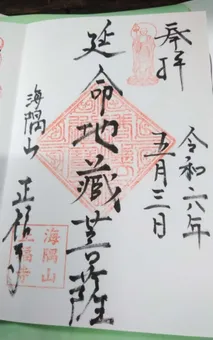 奉拝
令和六年
五月三日
延命地蔵菩薩
海隅山
正福寺
海隅山
正福寺